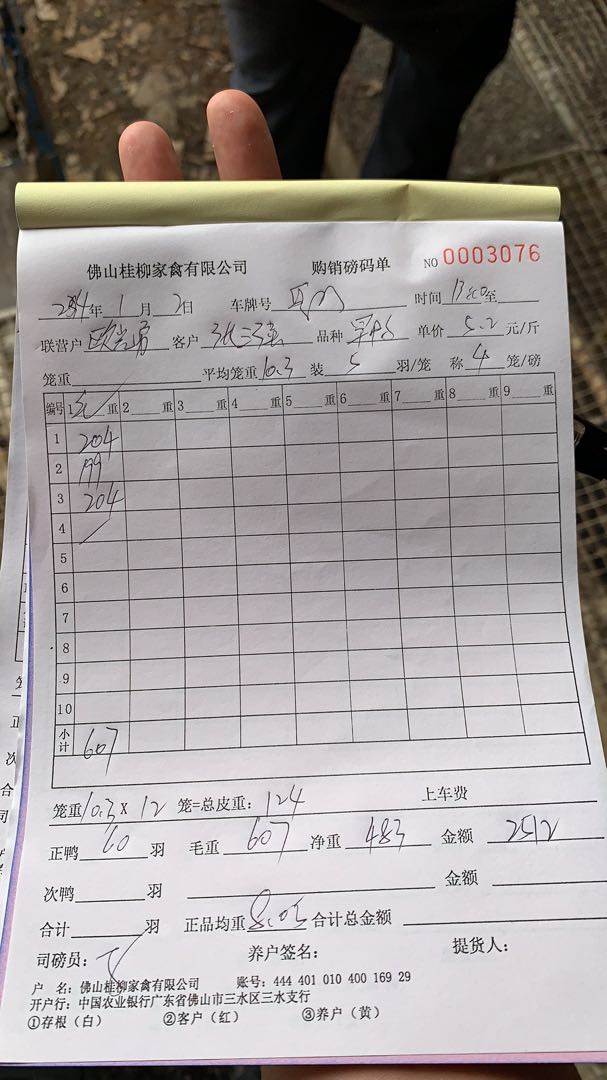 佛山桂柳家禽有限公司 购销磅码单 NO 0003076
年 1 月 2 日 车牌号 时间 至
联营户 客户 品种 单价 5.2 元/斤
笼重 平均笼重 10.3 装 5 羽/笼 称 4 笼/磅
编号 1 重 2 重 3 重 4 重 5 重 6 重 7 重 8 重 9 重
1 204
2 199
3 204
4
5
6
7
8
9
10
小计 607
笼重 10.3 × 12 笼=总皮重: 124 上车费
正鸭 60 羽 毛重 607 净重 483 金额 2512
次鸭 羽 金额
合计 羽 正品均重 8.05 合计总金额
司磅员: 养户签名: 提货人:
户 名: 佛山桂柳家禽有限公司 账号: 444 401 010 400 169 29
开户行: 中国农业银行广东省佛山市三水区三水支行
①存根（白） ②客户（红） ③养户（黄）